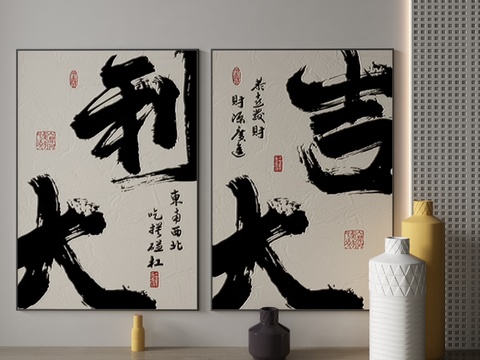 大吉
恭喜發財
財源廣進
大利
東南西北
吃摸碰杠